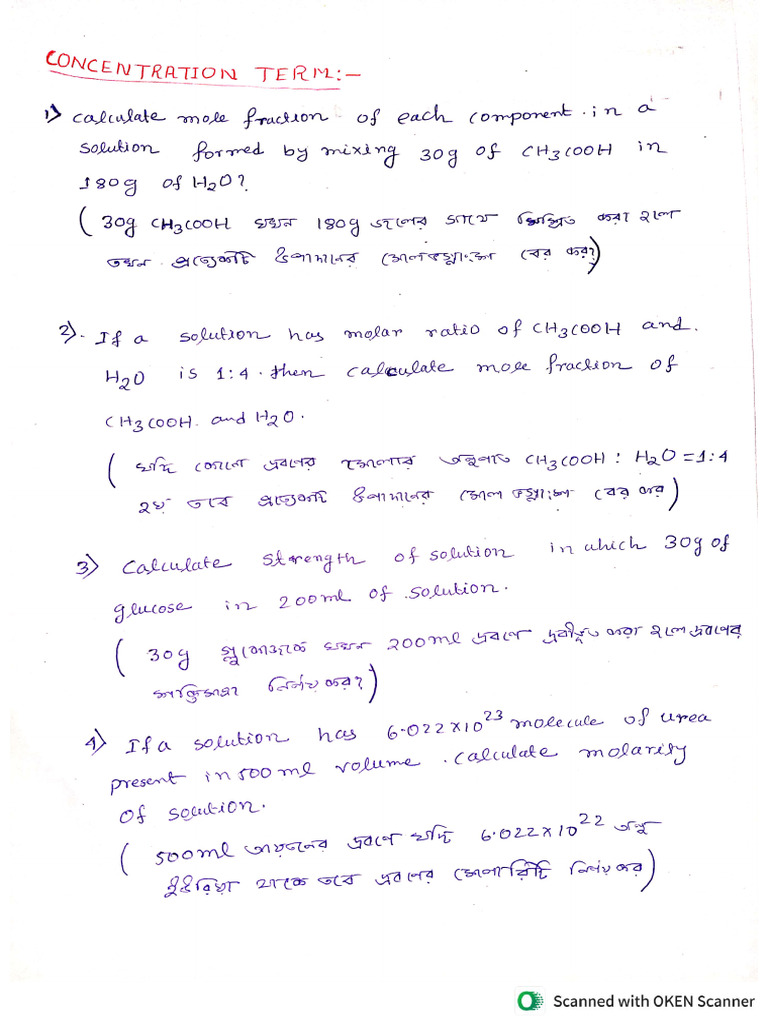 CONCENTRATION TERM:-
1) Calculate mole fraction of each component in a
solution formed by mixing 30g of CH3COOH in
180g of H2O?
( 30g CH3COOH যখন 180g জলের সাথে মিশ্রিত করা হলে
তখন প্রত্যেকটি উপাদানের মোলভগ্নাংশ বের কর?)
2). If a solution has molar ratio of CH3COOH and.
H2O is 1:4. then calculate mole fraction of
CH3COOH. and H2O.
( যদি কোনো দ্রবণের মোলার অনুপাত CH3COOH : H2O = 1:4
হয় তবে প্রত্যেকটি উপাদানের মোল ভগ্নাংশ বের কর )
3) Calculate Strength of solution in which 30g of
glucose in 200ml of solution.
( 30g গ্লুকোজকে যখন 200ml দ্রবণে দ্রবীভূত করা হলে দ্রবণের
শক্তিমাত্রা নির্ণয় কর?)
4) If a solution has 6.022×10^23 molecule of urea
present in 500ml volume. calculate molarity
of solution.
( 500ml আয়তনের দ্রবণে যদি 6.022×10^22 অনু
ইউরিয়া থাকে তবে দ্রবণের মোলারিটি নির্ণয় কর)
Scanned with OKEN Scanner